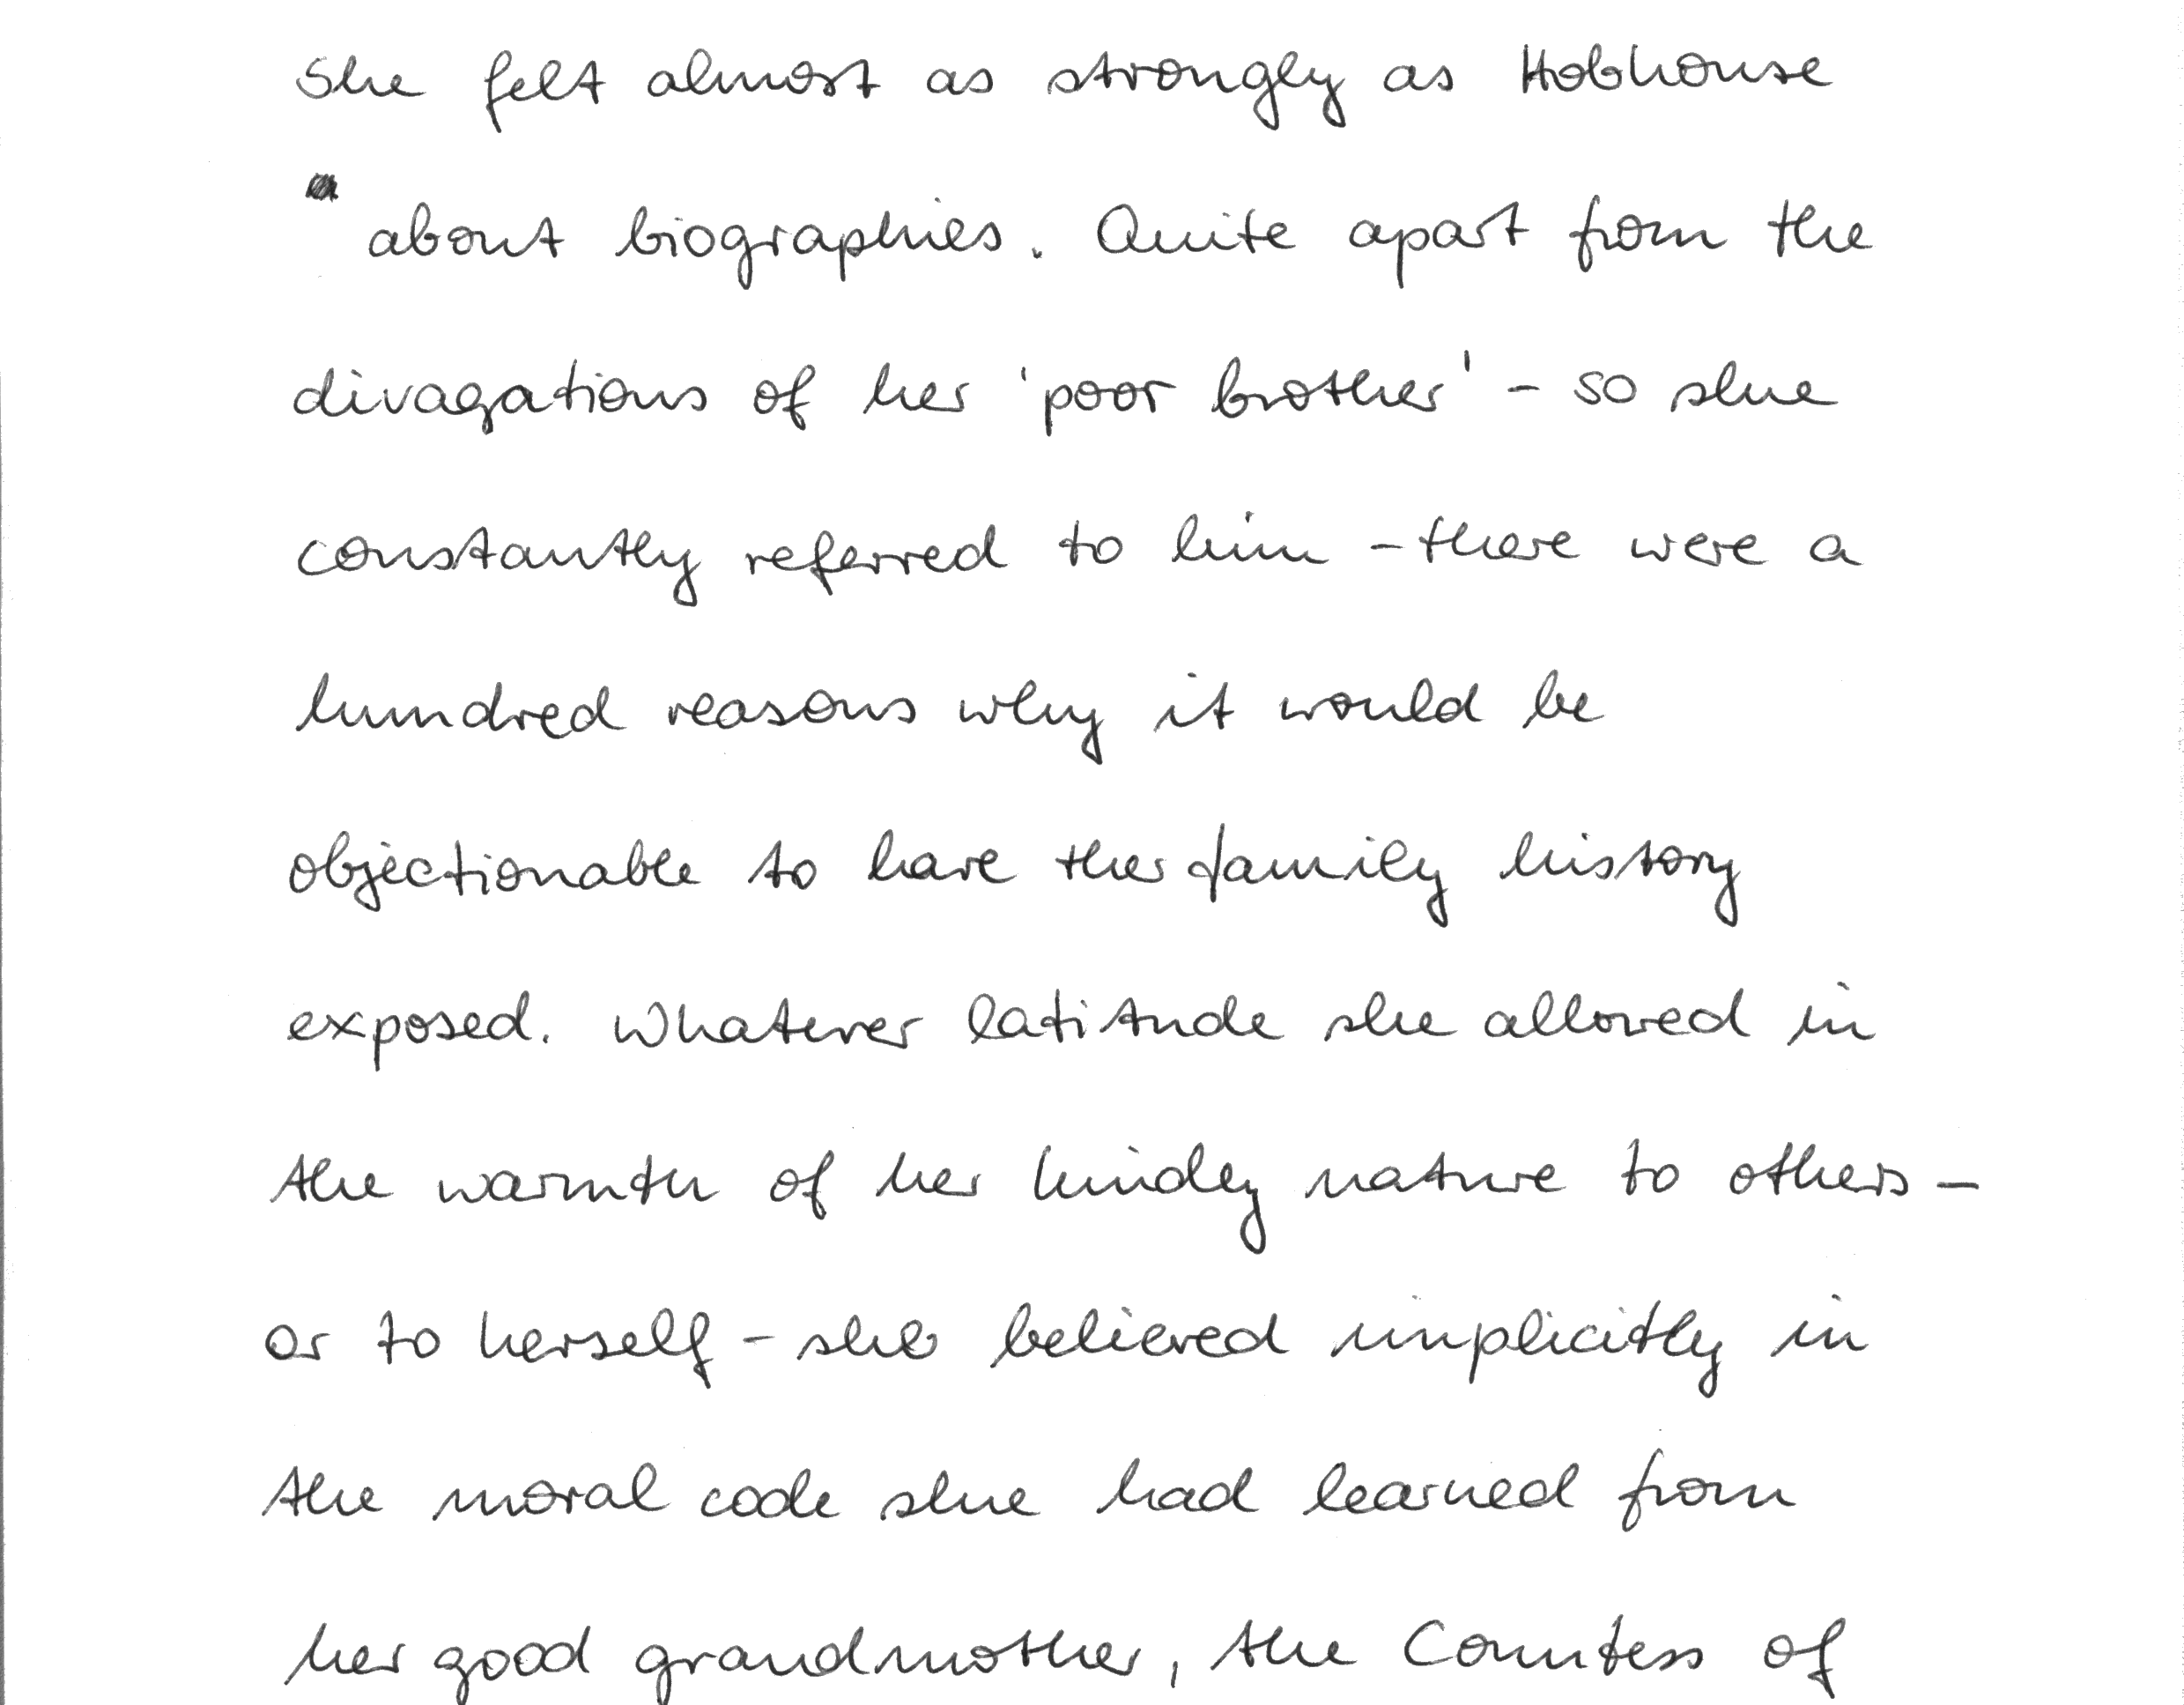 She felt almost as strongly as Hobhouse
about biographies. Quite apart from the
divagations of her 'poor brother' - so she
constantly referred to him - there were a
hundred reasons why it would be
objectionable to have ther family history
exposed. Whatever latitude she allowed in
the warmth of her kindly nature to others -
or to herself - she believed implicitly in
the moral code she had learned from
her good grandmother, the Countess of